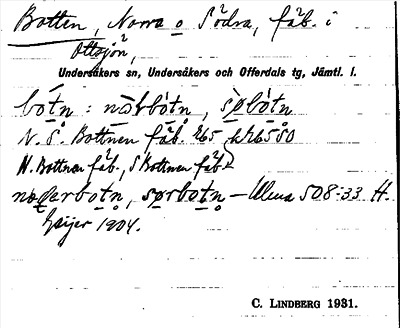 Botten, Norra o Södra, fäb. i
Ottsjön,
Undersåkers sn, Undersåkers och Offerdals tg, Jämtl. l.
bòtn : nòrbòtn, sø̀bòtn
N. S. Bottnen fäb.
N. Bottnen fäb., S Bottnen fäb.
sørbotn – Ulma 508:33 H.
Geijer 1904.
C. LINDBERG 1931.